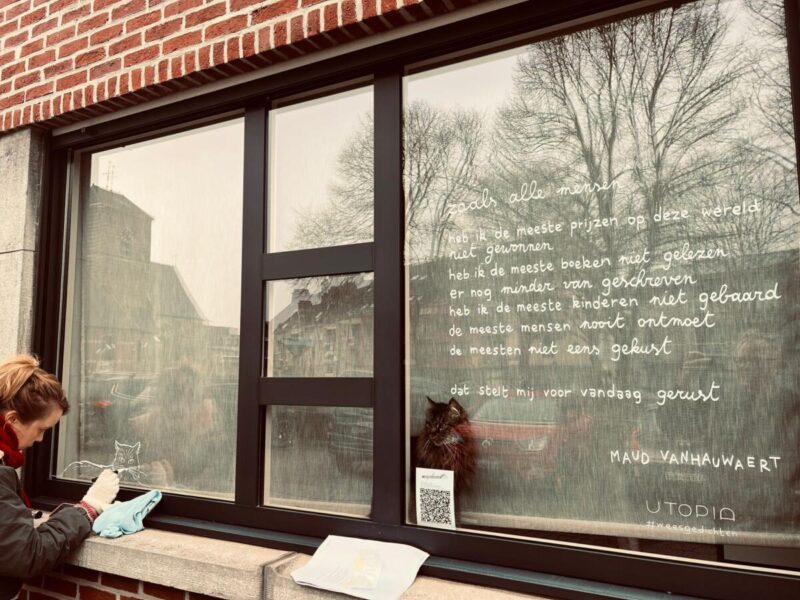 zoals alle mensen
heb ik de meeste prijzen op deze wereld
niet gewonnen
heb ik de meeste boeken niet gelezen
er nog minder van geschreven
heb ik de meeste kinderen niet gebaard
de meeste mensen nooit ontmoet
de meesten niet eens gekust
dat stelt mij voor vandaag gerust
MAUD VANHAUWAERT
UTOPIA
#waasgedichten